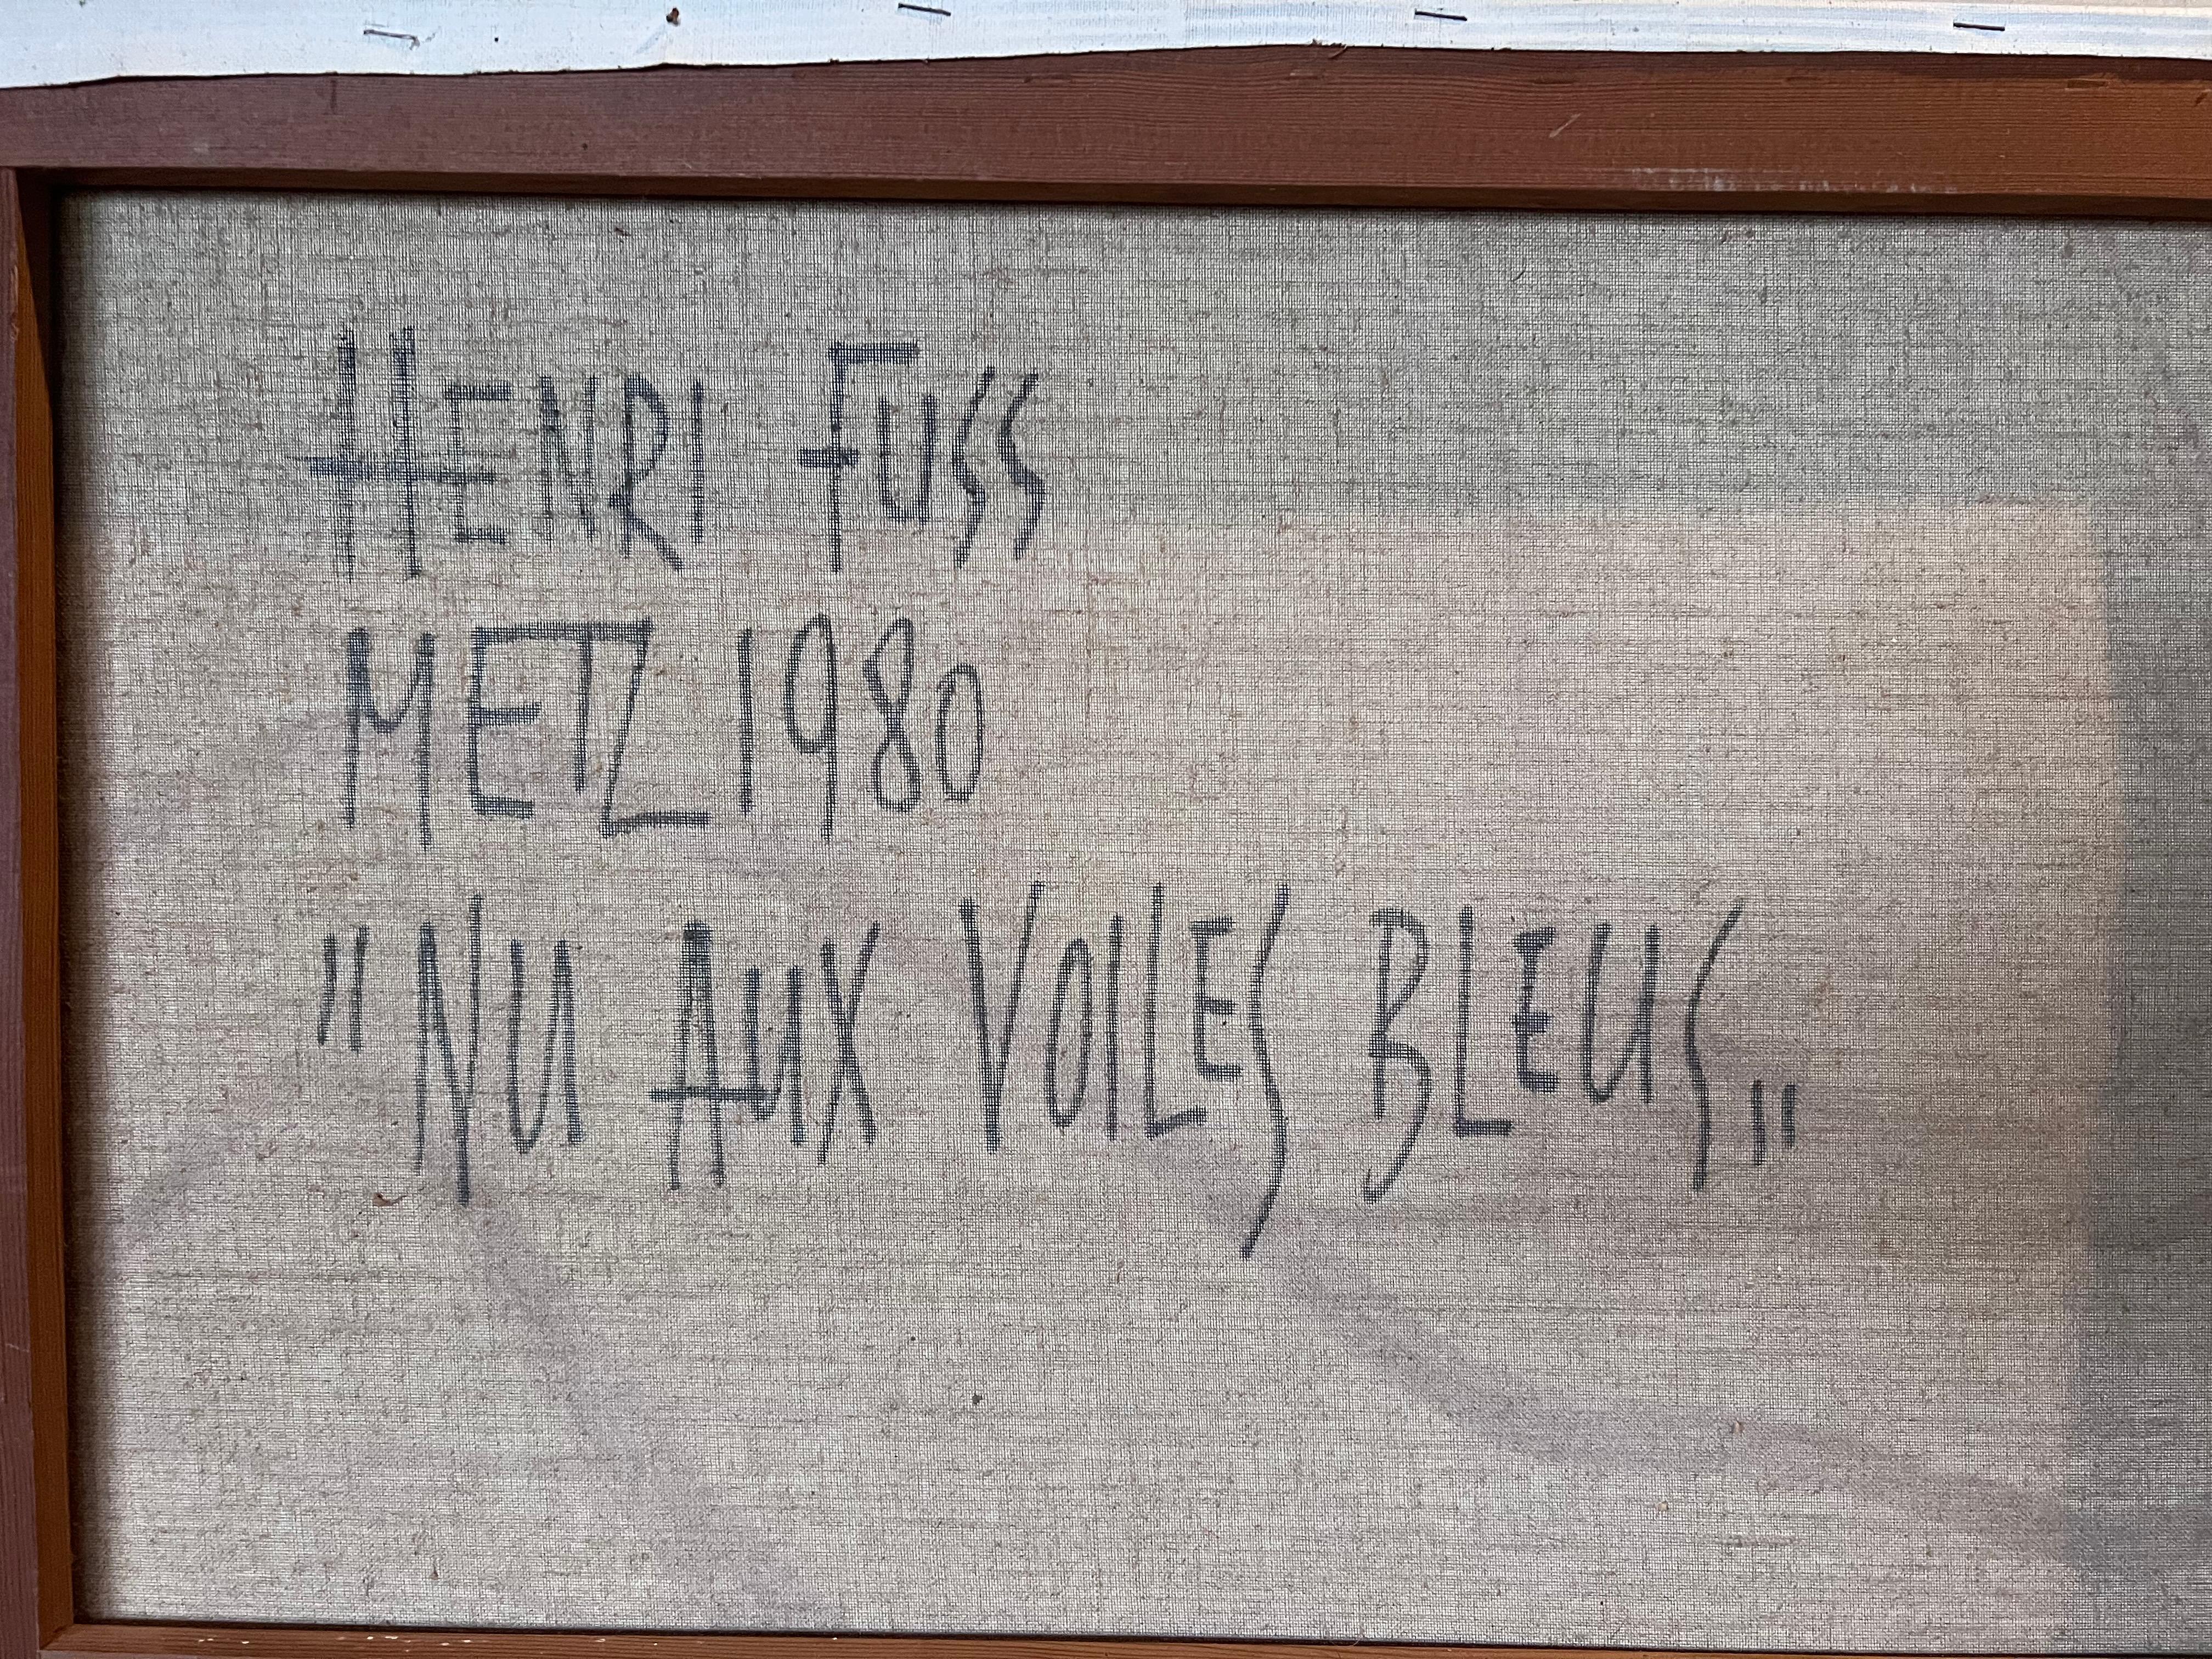 HENRI FUSS
METZ 1980
"NU AUX VOILES BLEUS„